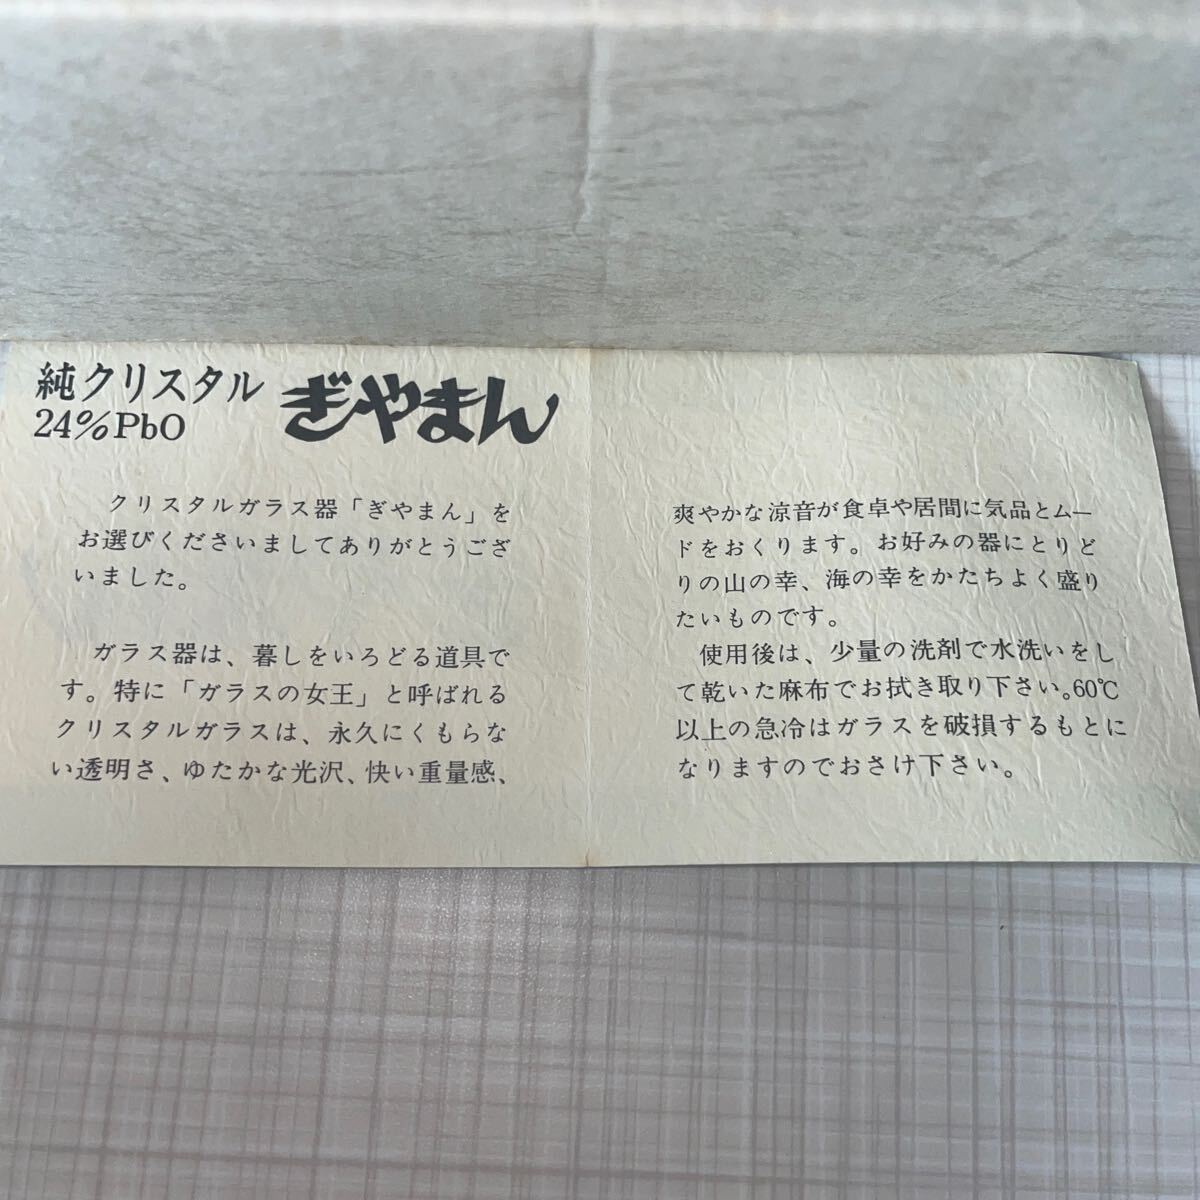 純クリスタル
24%PbO
ぎやまん
クリスタルガラス器「ぎやまん」を
お選びくださいましてありがとうござ
いました。
ガラス器は、暮しをいろどる道具で
す。特に「ガラスの女王」と呼ばれる
クリスタルガラスは、永久にくもらな
い透明さ、ゆたかな光沢、快い重量感、
爽やかな涼音が食卓や居間に気品とムー
ドをおくります。お好みの器にとりど
りの山の幸、海の幸をかたちよく盛り
たいものです。
使用後は、少量の洗剤で水洗いをし
て乾いた麻布でお拭き取り下さい。60℃
以上の急冷はガラスを破損するもとに
なりますのでおさけ下さい。